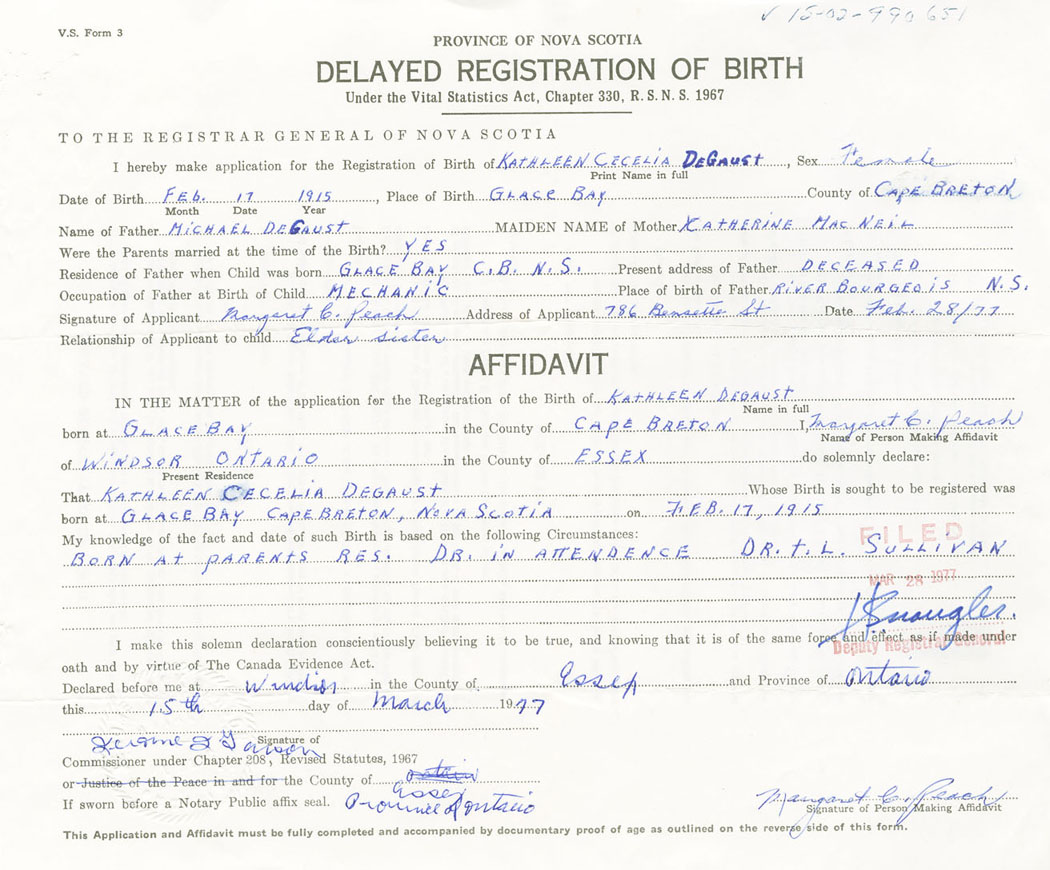 ✓ 15-02-990651
V.S. Form 3
PROVINCE OF NOVA SCOTIA
DELAYED REGISTRATION OF BIRTH
Under the Vital Statistics Act, Chapter 330, R. S. N. S. 1967
TO THE REGISTRAR GENERAL OF NOVA SCOTIA
I hereby make application for the Registration of Birth of KATHLEEN CECELIA DEGAUST, Sex Female
Print Name in full
Date of Birth FEB. 17 1915, Place of Birth GLACE BAY County of CAPE BRETON
Month Date Year
Name of Father MICHAEL DEGAUST MAIDEN NAME of Mother KATHERINE MAC NEIL
Were the Parents married at the time of the Birth? YES
Residence of Father when Child was born GLACE BAY C.B. N.S. Present address of Father DECEASED
Occupation of Father at Birth of Child MECHANIC Place of birth of Father RIVER BOURGEOIS N.S.
Signature of Applicant Margaret C. Peach Address of Applicant 786 Bensette St Date Feb. 28/77
Relationship of Applicant to child Elder sister
AFFIDAVIT
IN THE MATTER of the application for the Registration of the Birth of KATHLEEN DEGAUST
Name in full
born at GLACE BAY in the County of CAPE BRETON I, Margaret C. Peach
Name of Person Making Affidavit
of WINDSOR ONTARIO in the County of ESSEX do solemnly declare:
Present Residence
That KATHLEEN CECELIA DEGAUST Whose Birth is sought to be registered was
born at GLACE BAY CAPE BRETON, NOVA SCOTIA on FEB. 17, 1915
My knowledge of the fact and date of such Birth is based on the following Circumstances:
FILED
BORN AT PARENTS RES. DR. IN ATTENDENCE DR. T. L. SULLIVAN
MAR 28 1977
I make this solemn declaration conscientiously believing it to be true, and knowing that it is of the same force and effect as if made under
Deputy Registrar General
oath and by virtue of The Canada Evidence Act.
Declared before me at Windsor in the County of Essex and Province of Ontario
this 15th day of March 1977
Signature of
Commissioner under Chapter 208, Revised Statutes, 1967
or Justice of the Peace in and for the County of
Essex
If sworn before a Notary Public affix seal. Province of Ontario
Margaret C. Peach
Signature of Person Making Affidavit
This Application and Affidavit must be fully completed and accompanied by documentary proof of age as outlined on the reverse side of this form.